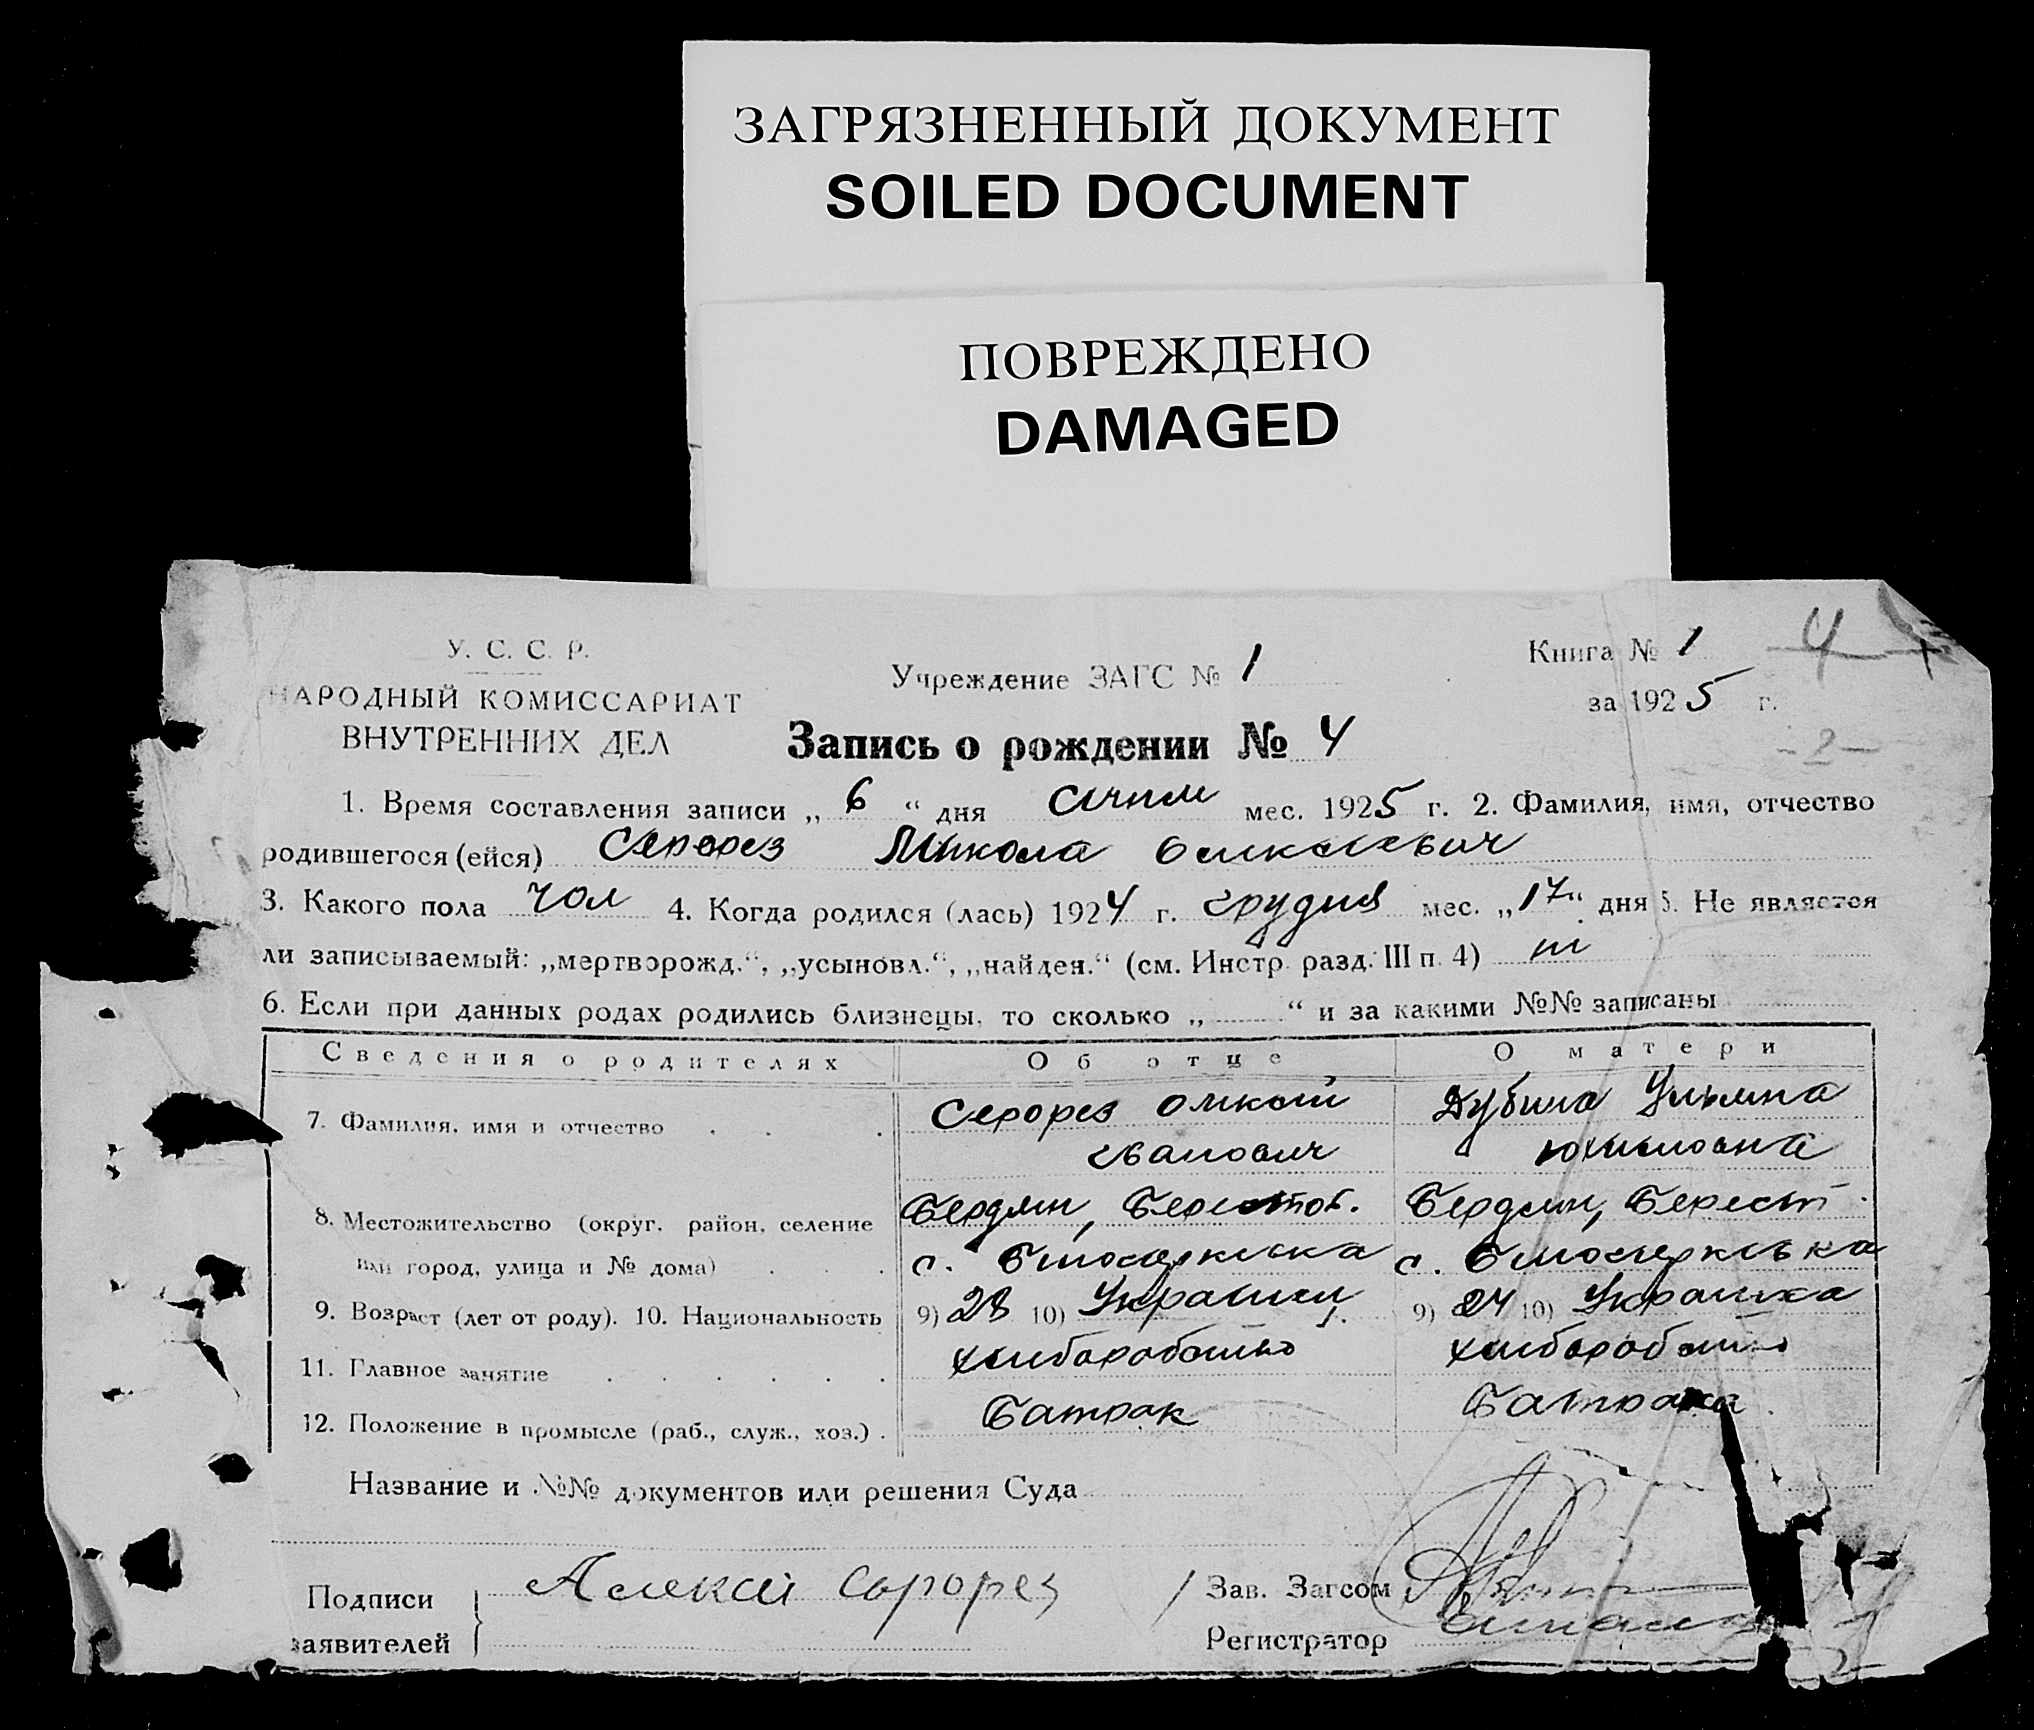 ЗАГРЯЗНЕННЫЙ ДОКУМЕНТ
SOILED DOCUMENT
ПОВРЕЖДЕНО
DAMAGED
У. С. С. Р.
НАРОДНЫЙ КОМИССАРИАТ
ВНУТРЕННИХ ДЕЛ
Учреждение ЗАГС № 1
Книга № 1
4
за 1925 г.
-2-
Запись о рождении № 4
1. Время составления записи „6“ дня січня мес. 1925 г. 2. Фамилия, имя, отчество
родившегося (ейся) Серорез Микола Олексієвич
3. Какого пола чол 4. Когда родился (лась) 1924 г. грудня мес. „17“ дня 5. Не является
ли записываемый: „мертворожд.“, „усыновл.“, „найден.“ (см. Инстр. разд. III п. 4) ні
6. Если при данных родах родились близнецы, то сколько „ “ и за какими №№ записаны
Сведения о родителях Об отце О матери
7. Фамилия, имя и отчество Серорез Олексій Дубина Уляна
Іванович Юхимовна
8. Местожительство (округ. район, селение Бердян, Берестов. Бердян, Берест.
или город, улица и № дома) с. с.
9. Возраст (лет от роду). 10. Национальность 9) 28 10) 9) 24 10) Украинка
11. Главное занятие хліборобство хліборобство
12. Положение в промысле (раб., служ., хоз.) Батрак Батрачка
Название и №№ документов или решения Суда
Подписи Алексей Сорорез Зав. Загсом
заявителей Регистратор